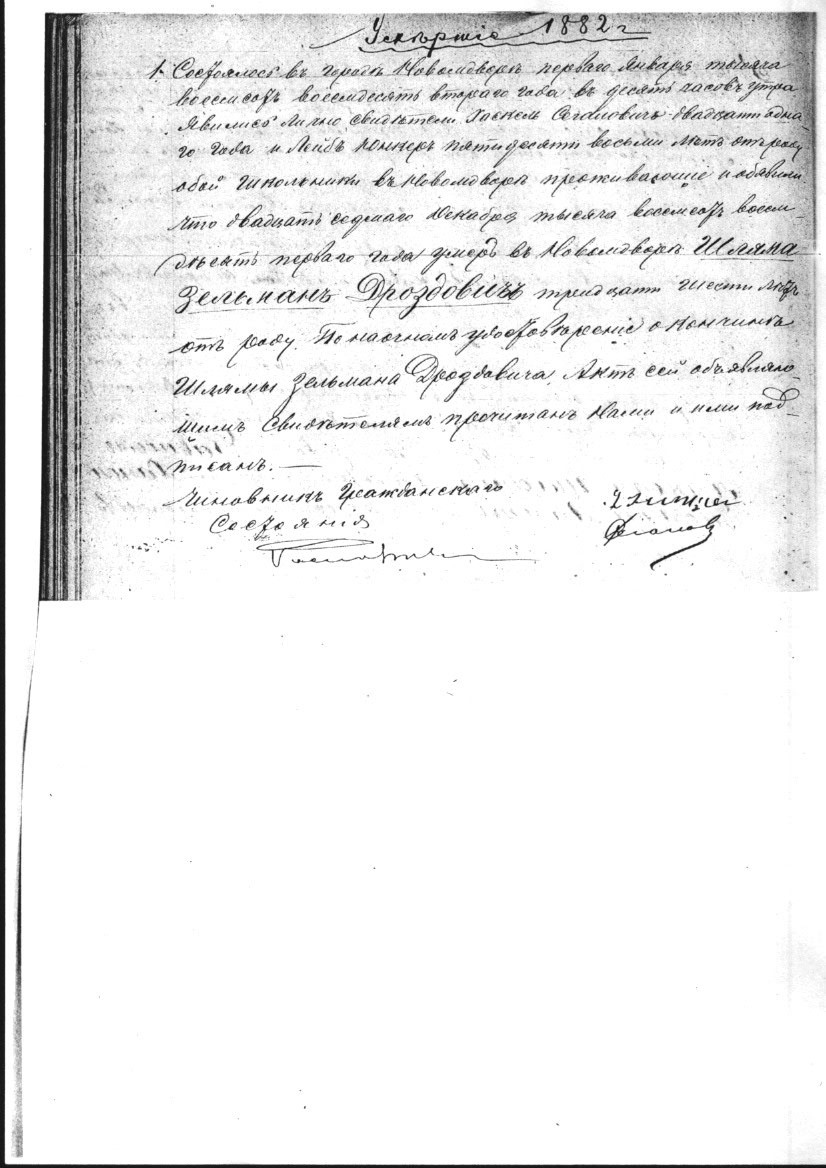 Умершіе 1882 г
1. Состоялось въ городѣ Новомдворѣ перваго Января тысяча
восемсотъ восемдесятъ втораго года въ десять часовъ утра
Явились лично свидѣтели Хаскель двадцати одна-
го года и Лейбъ Юнкеръ пятидесяти восьми лѣтъ отъ роду
обой Школьники въ Новомдворѣ проживающіе и объявили
что двадцать седмаго Декабря тысяча восемсотъ восем-
десять перваго года умеръ въ Новомдворѣ Шляма
Зельманъ Дроздовичъ тридцати шести лѣтъ
отъ роду. По наочномъ удостовѣреніе о кончинѣ
Шлямы Зельмана Дроздовича, Актъ сей объявляю-
щимъ Свидѣтелямъ прочитанъ Нами и ими под-
писанъ. —
Чиновникъ Гражданскаго
Состоянія